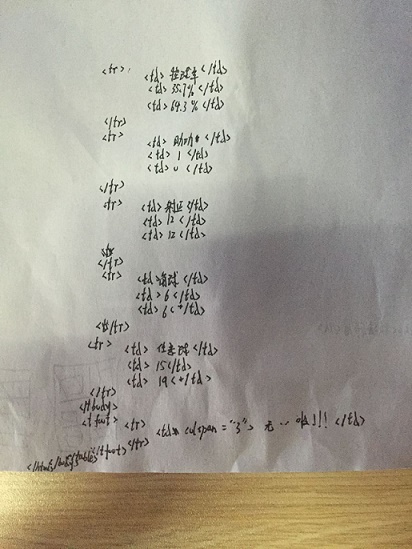 <tr>
<td> 控球率 </td>
<td> 35.7% </td>
<td> 64.3% </td>
</tr>
<tr>
<td> 助攻 </td>
<td> 1 </td>
<td> 0 </td>
</tr>
<tr>
<td> 射正 </td>
<td> 12 </td>
<td> 12 </td>
</tr>
<tr>
<td> 角球 </td>
<td> 6 </td>
<td> 6 </td>
</tr>
<tr>
<td> 任意球 </td>
<td> 15 </td>
<td> 19 </td>
</tr>
</tbody>
<tfoot> <tr> <td colspan = "3"> !!! </td>
</html></body></table></tfoot></tr>